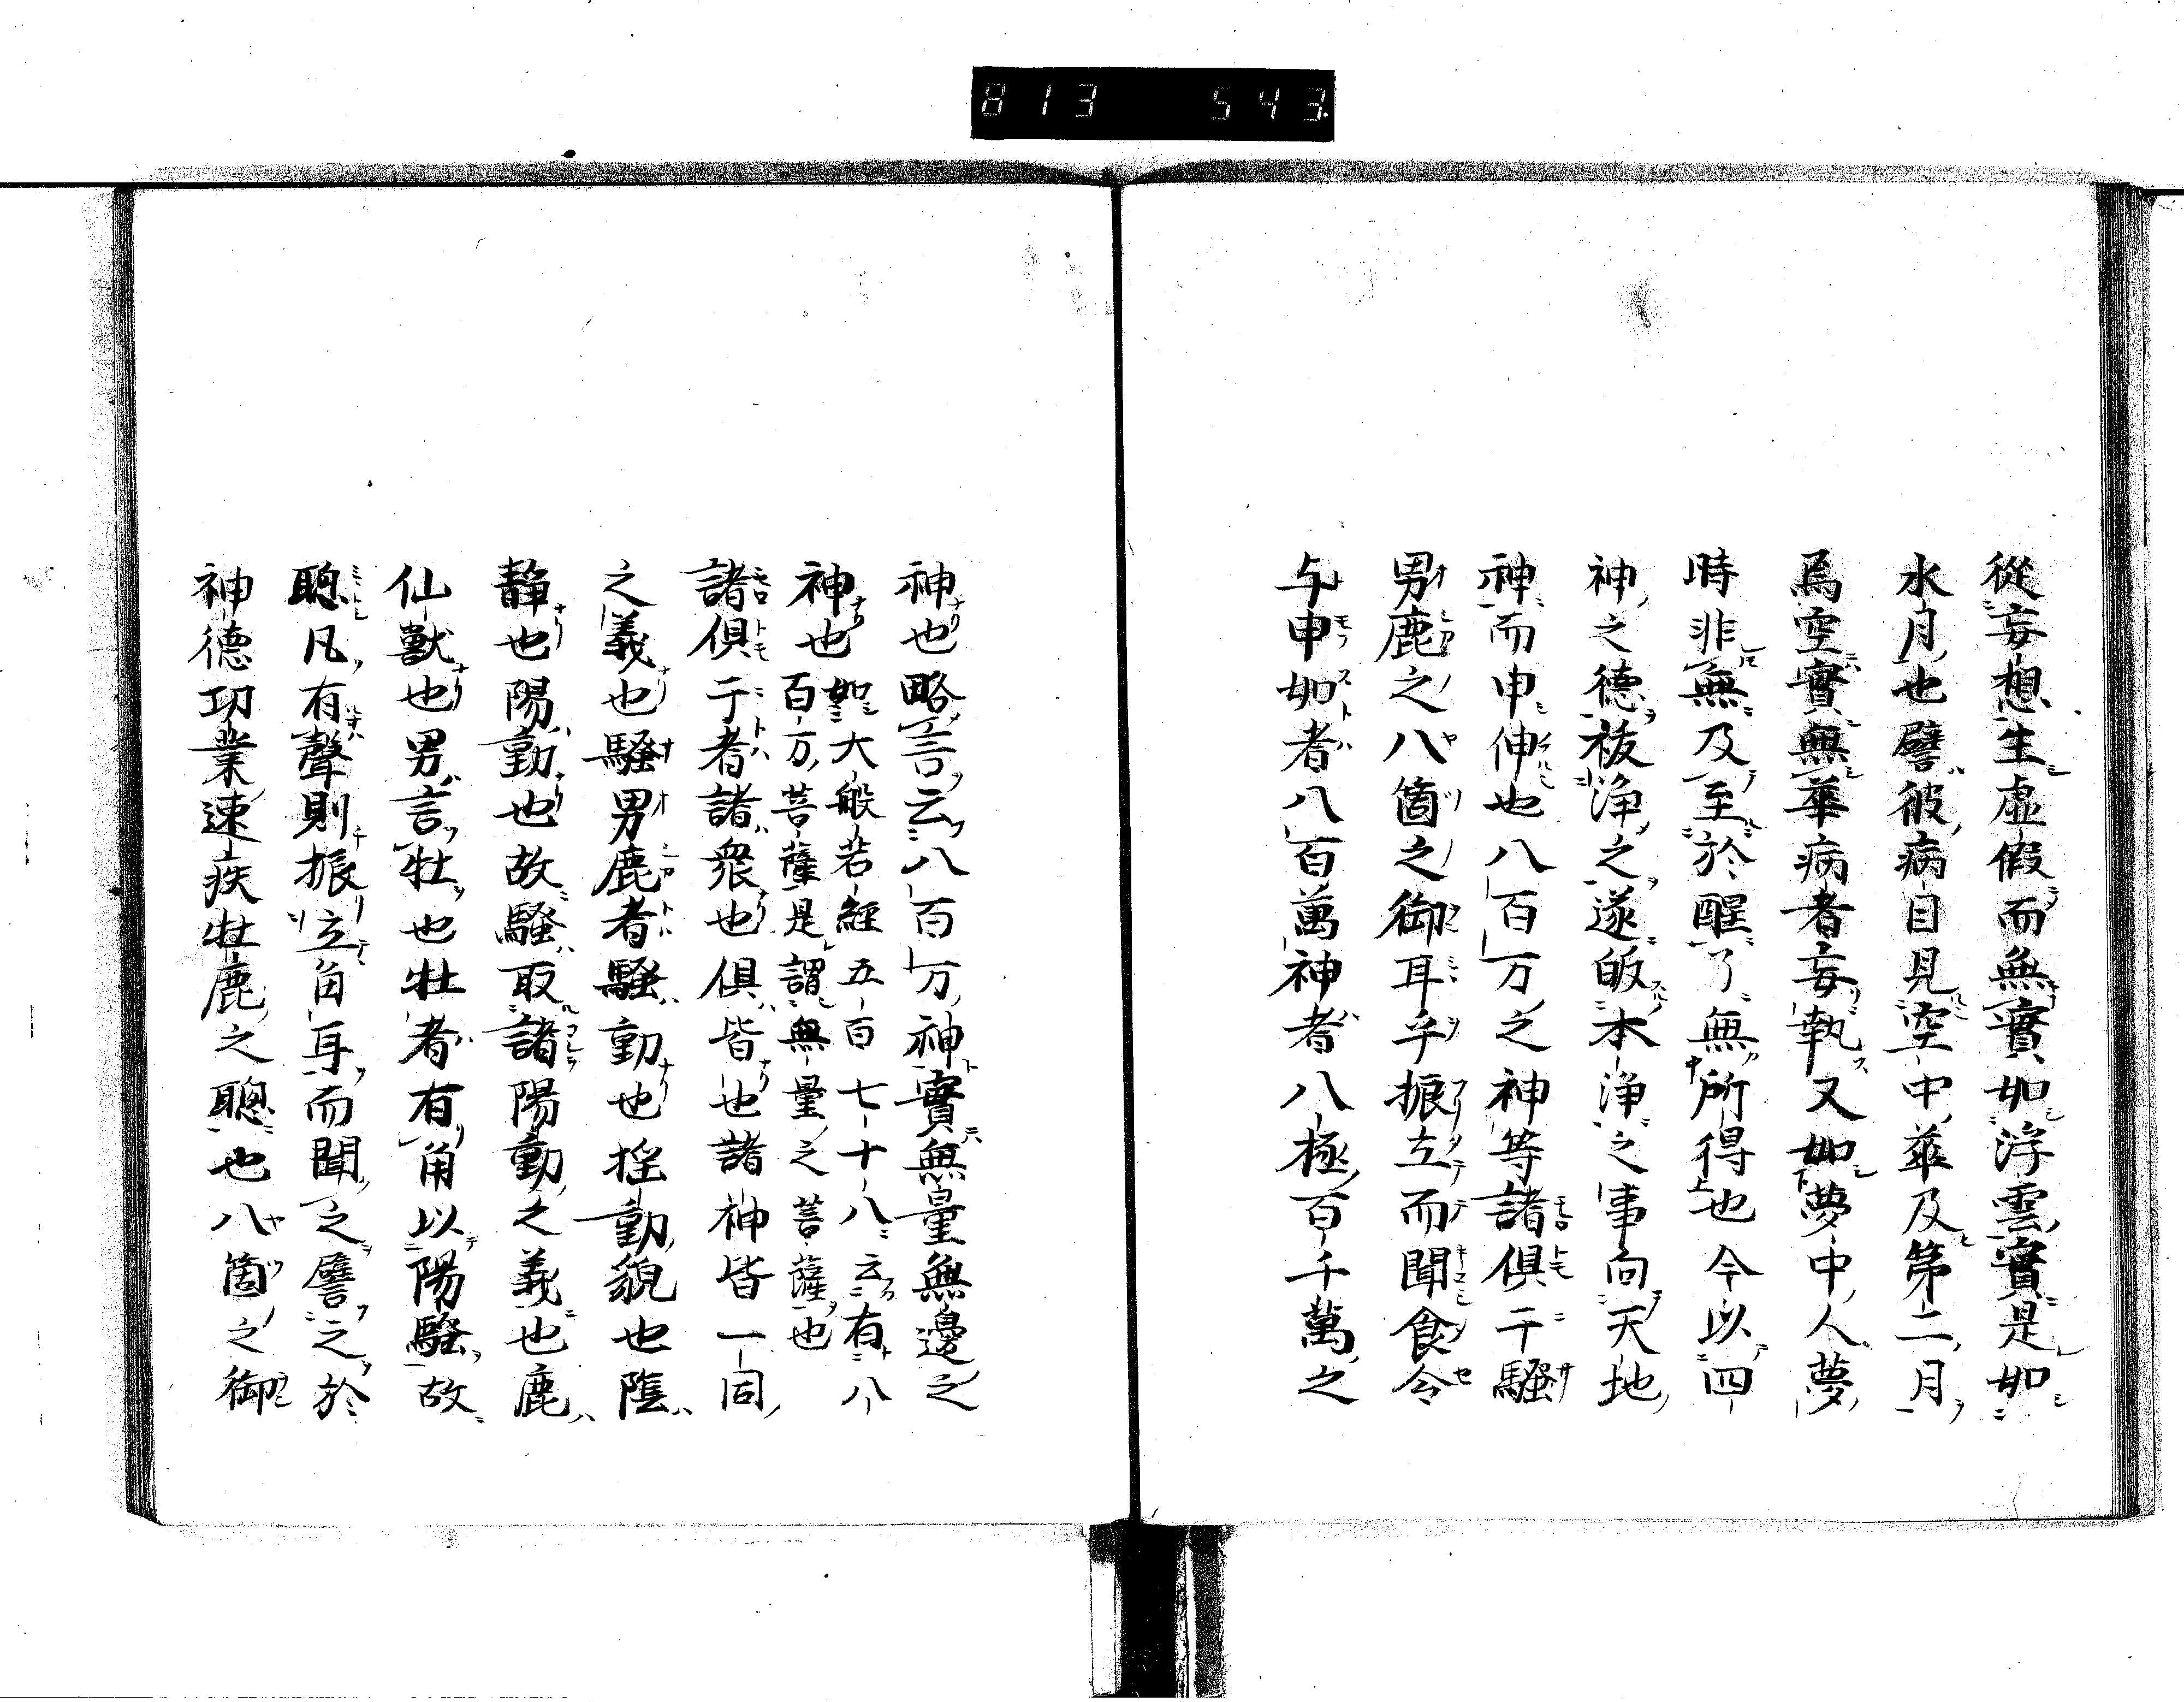 813 543
從妄想生虚假而無實如浮雲實是如
水月也譬彼病目見空中華及第二月
焉空實無華病者妄執又如夢中人夢
時非無及至於醒了無所得也今以四
神之德祓浄之遂皈本浄之事向天地
神而申伸也八百万之神等諸俱干騒
男鹿之八箇之御耳乎振立而聞食令
与申如者八百萬神者八極百千萬之
神也略言云八百万神實無量無邊之
神也如大般若經五百七十八云有八
百万菩薩是謂無量之菩薩也
諸俱于者諸衆也俱皆也諸神皆一同
之義也騒男鹿者騒動也揺動貌也陰
静也陽動也故騒取諸陽動之義也鹿
仙獣也男言牡也牡者有角以陽騒故
聰凡有聲則振立角耳而聞之譬之於
神德功業速疾牡鹿之聰也八箇之御